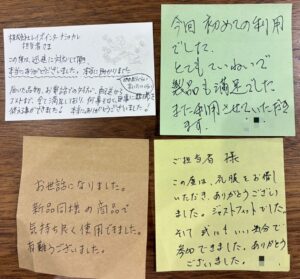 担当者さま
この度は、迅速に対応して頂き、
本当にありがとうございました。本当に助かりました。
届いた品物、お電話での対応、配送から
全て満足しており、何事もなく無事に
使う事ができました！本当にありがとうございました。
今回初めての利用
でした。
とてもていねいで
製品も満足でした
また利用させていただき
ます。
お世話になりました。
新品同様の商品で
気持ち良く使用できました。
有難うございました。
ご担当者 様
この度は、衣服をお借し
いただき、ありがとうござい
ました。ジャストフィットでした。
そして式にもいい気分で
参加できました。ありがとう
ございました。